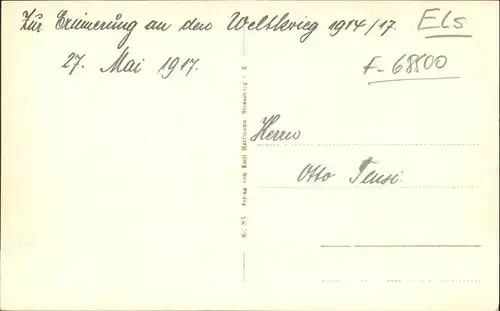 Zur Erinnerung an den Weltkrieg 1914/17.
27. Mai 1917.
Els
F-68500
Herrn
Otto
Nr. 85 Verlag von Emil Hartmann Strassburg i. E.